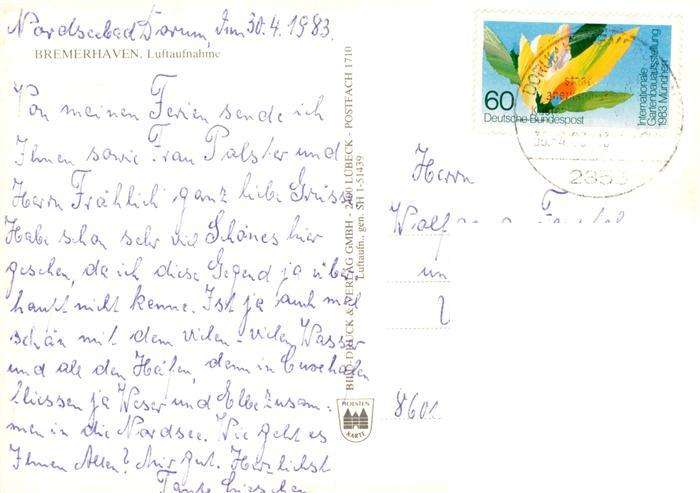 Nordseebad Dorum, Im 30.4.1983.
BREMERHAVEN, Luftaufnahme
Von meinen Ferien sende ich
Ihnen sowie Frau Palster und
Herrn Fröhlich ganz liebe Grüsse
Habe schon sehr viel Schönes hier
gesehen, da ich diese Gegend ja über
haupt nicht kenne. Ist ja auch mal
schön mit dem vielen-vielen Wasser
und all den Häfen, denn in Cuxhafen
fliessen ja Weser und Elbe zusam-
men in die Nordsee. Wie geht es
Ihnen Allen? Mir gut. Herzlichst
Tante
BILD-DRUCK & VERTAG GMBH - 2400 LÜBECK - POSTFACH 1710
Luftaufn., gen. SH 1-51439
HOLSTEN
KARTE
60
Deutsche Bundespost
Internationale
Gartenbauausstellung
1983 München
Herrn
un
8601